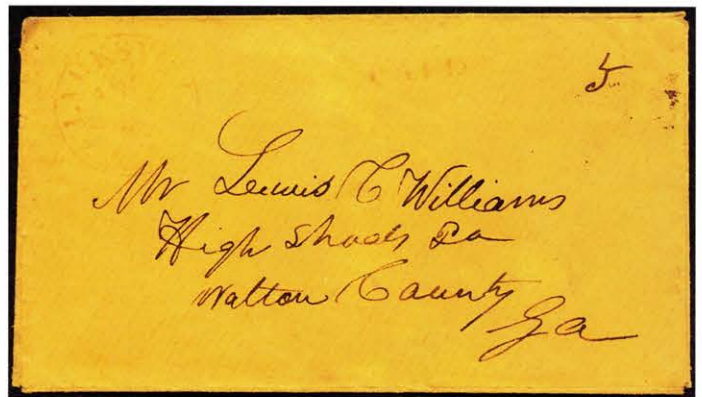 5
Mr Lewis C Williams
High Shoals Ga
Walton County
Ga